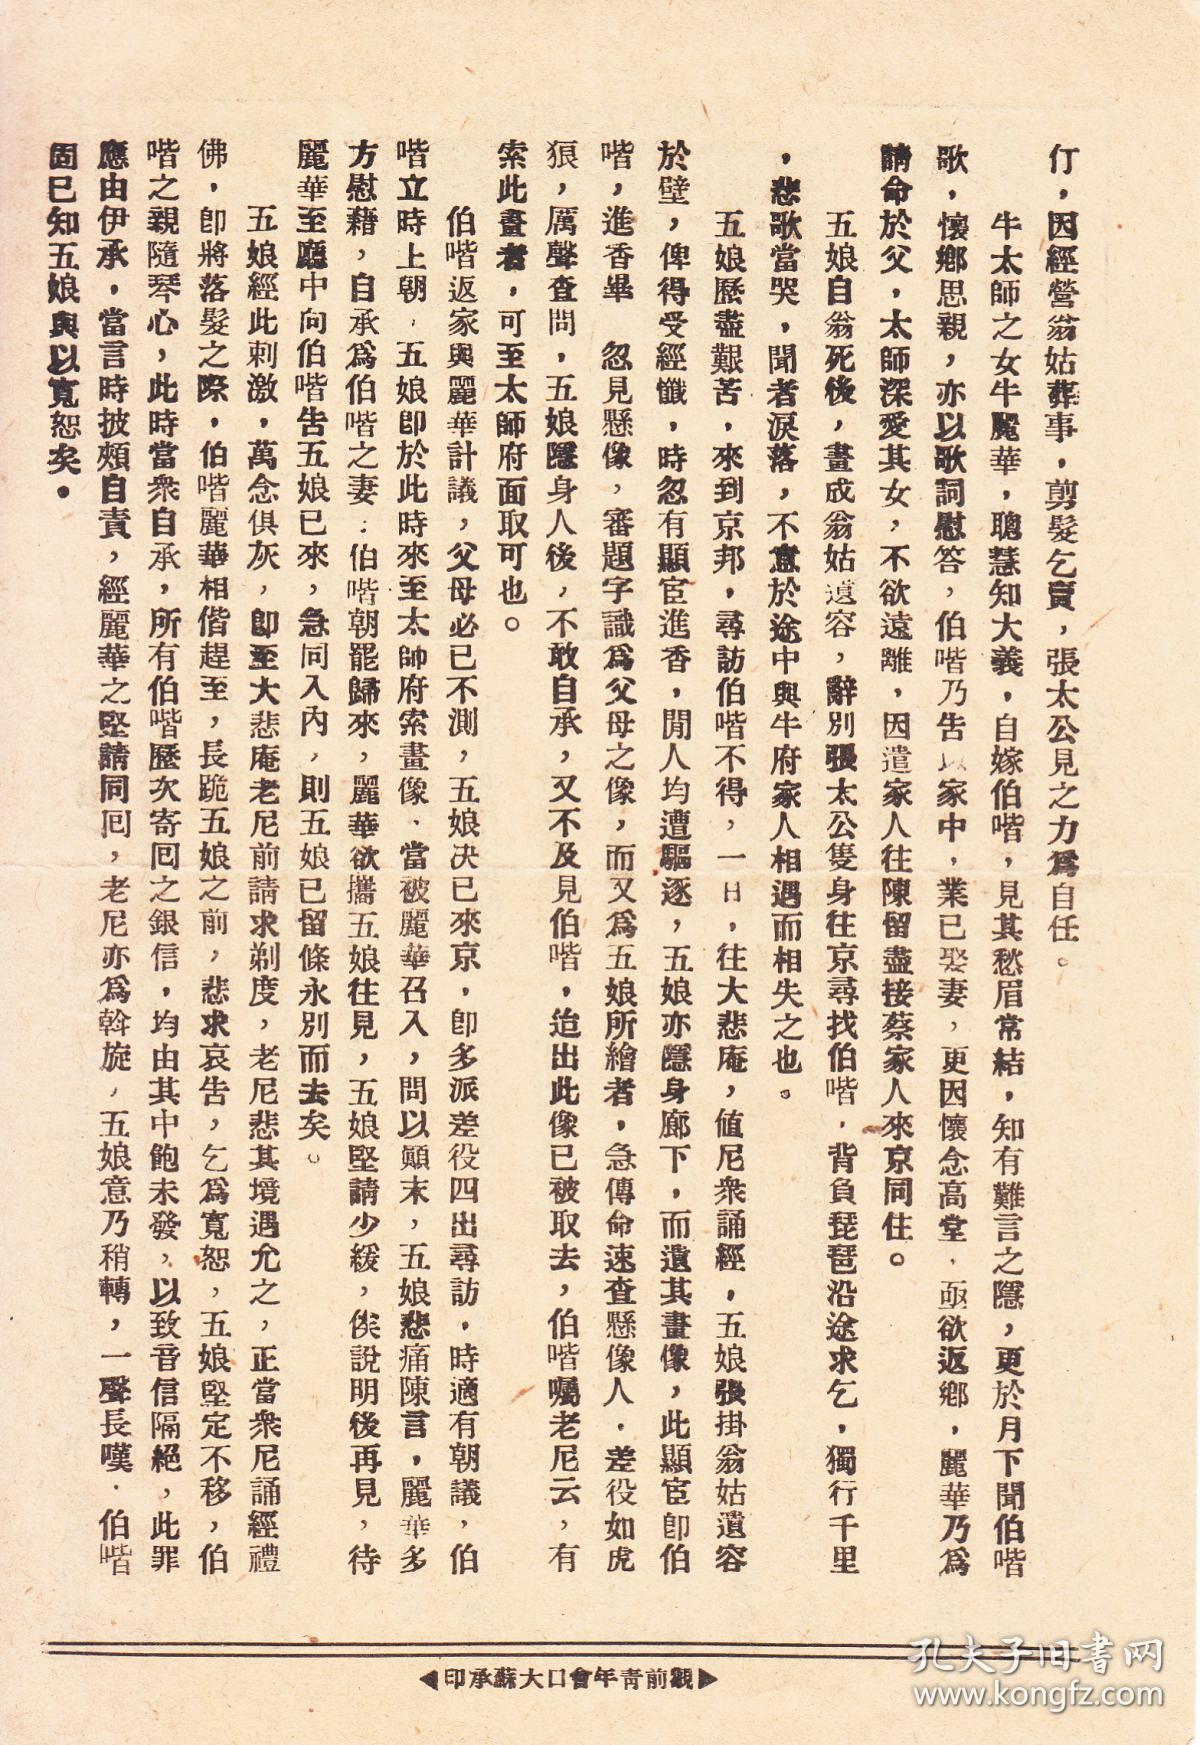 仃，因經營翁姑葬事，剪髮乞賣，張太公見之力爲自任。
牛太師之女牛麗華，聰慧知大義，自嫁伯喈，見其愁眉常結，知有難言之隱，更於月下聞伯喈
歌，懷鄉思親，亦以歌詞慰答，伯喈乃告以家中，業已娶妻，更因懷念高堂，亟欲返鄉，麗華乃爲
請命於父，太師深愛其女，不欲遠離，因遣家人往陳留盡接蔡家人來京同住。
五娘自翁死後，畫成翁姑遺容，辭別張太公隻身往京尋找伯喈，背負琵琶沿途求乞，獨行千里
，悲歌當哭，聞者淚落，不意於途中與牛府家人相遇而相失之也。
五娘歷盡艱苦，來到京邦，尋訪伯喈不得，一日，往大悲庵，値尼衆誦經，五娘張掛翁姑遺容
於壁，俾得受經懺，時忽有顯宦進香，閒人均遭驅逐，五娘亦隱身廊下，而遺其畫像，此顯宦卽伯
喈，進香畢　忽見懸像，審題字識爲父母之像，而又爲五娘所繪者，急傳命速查懸像人．差役如虎
狼，厲聲查問，五娘隱身人後，不敢自承，又不及見伯喈，迨出此像已被取去，伯喈囑老尼云，有
索此畫者，可至太師府面取可也。
伯喈返家與麗華計議，父母必已不測，五娘決已來京，卽多派差役四出尋訪，時適有朝議，伯
喈立時上朝，五娘卽於此時來至太師府索畫像．當被麗華召入，問以顚末，五娘悲痛陳言，麗華多
方慰藉，自承爲伯喈之妻；伯喈朝罷歸來，麗華欲攜五娘往見，五娘堅請少緩，俟說明後再見，待
麗華至廳中向伯喈告五娘已來，急同入內，則五娘已留條永別而去矣。
五娘經此刺激，萬念俱灰，卽至大悲庵老尼前請求剃度，老尼悲其境遇允之，正當衆尼誦經禮
佛，卽將落髮之際，伯喈麗華相偕趕至，長跪五娘之前，悲求哀告，乞爲寬恕，五娘堅定不移，伯
喈之親隨琴心，此時當衆自承，所有伯喈歷次寄回之銀信，均由其中飽未發，以致音信隔絕，此罪
應由伊承，當言時披頰自責，經麗華之堅請同回，老尼亦爲斡旋，五娘意乃稍轉，一聲長嘆．伯喈
固已知五娘與以寬恕矣。
▶觀前靑年會口大蘇承印◀
孔夫子旧书网
www.kongfz.com